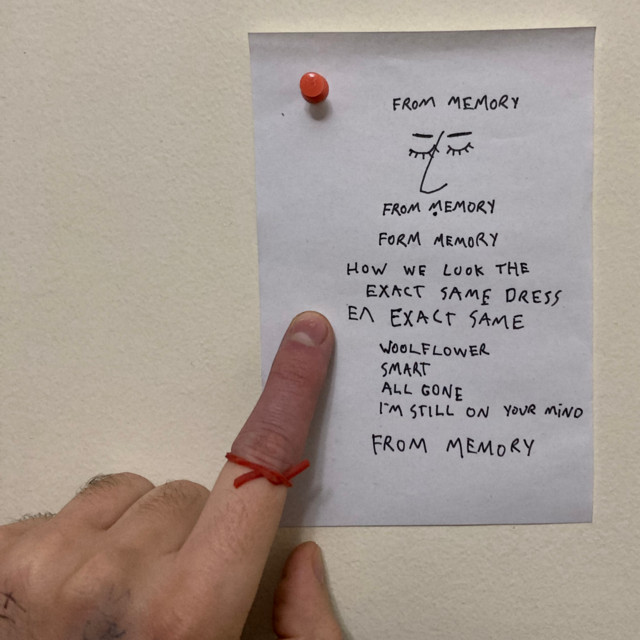 FROM MEMORY
FROM MEMORY
FORM MEMORY
HOW WE LOOK THE
EXACT SAME DRESS
EXACT SAME
WOOLFLOWER
SMART
ALL GONE
I'M STILL ON YOUR MIND
FROM MEMORY